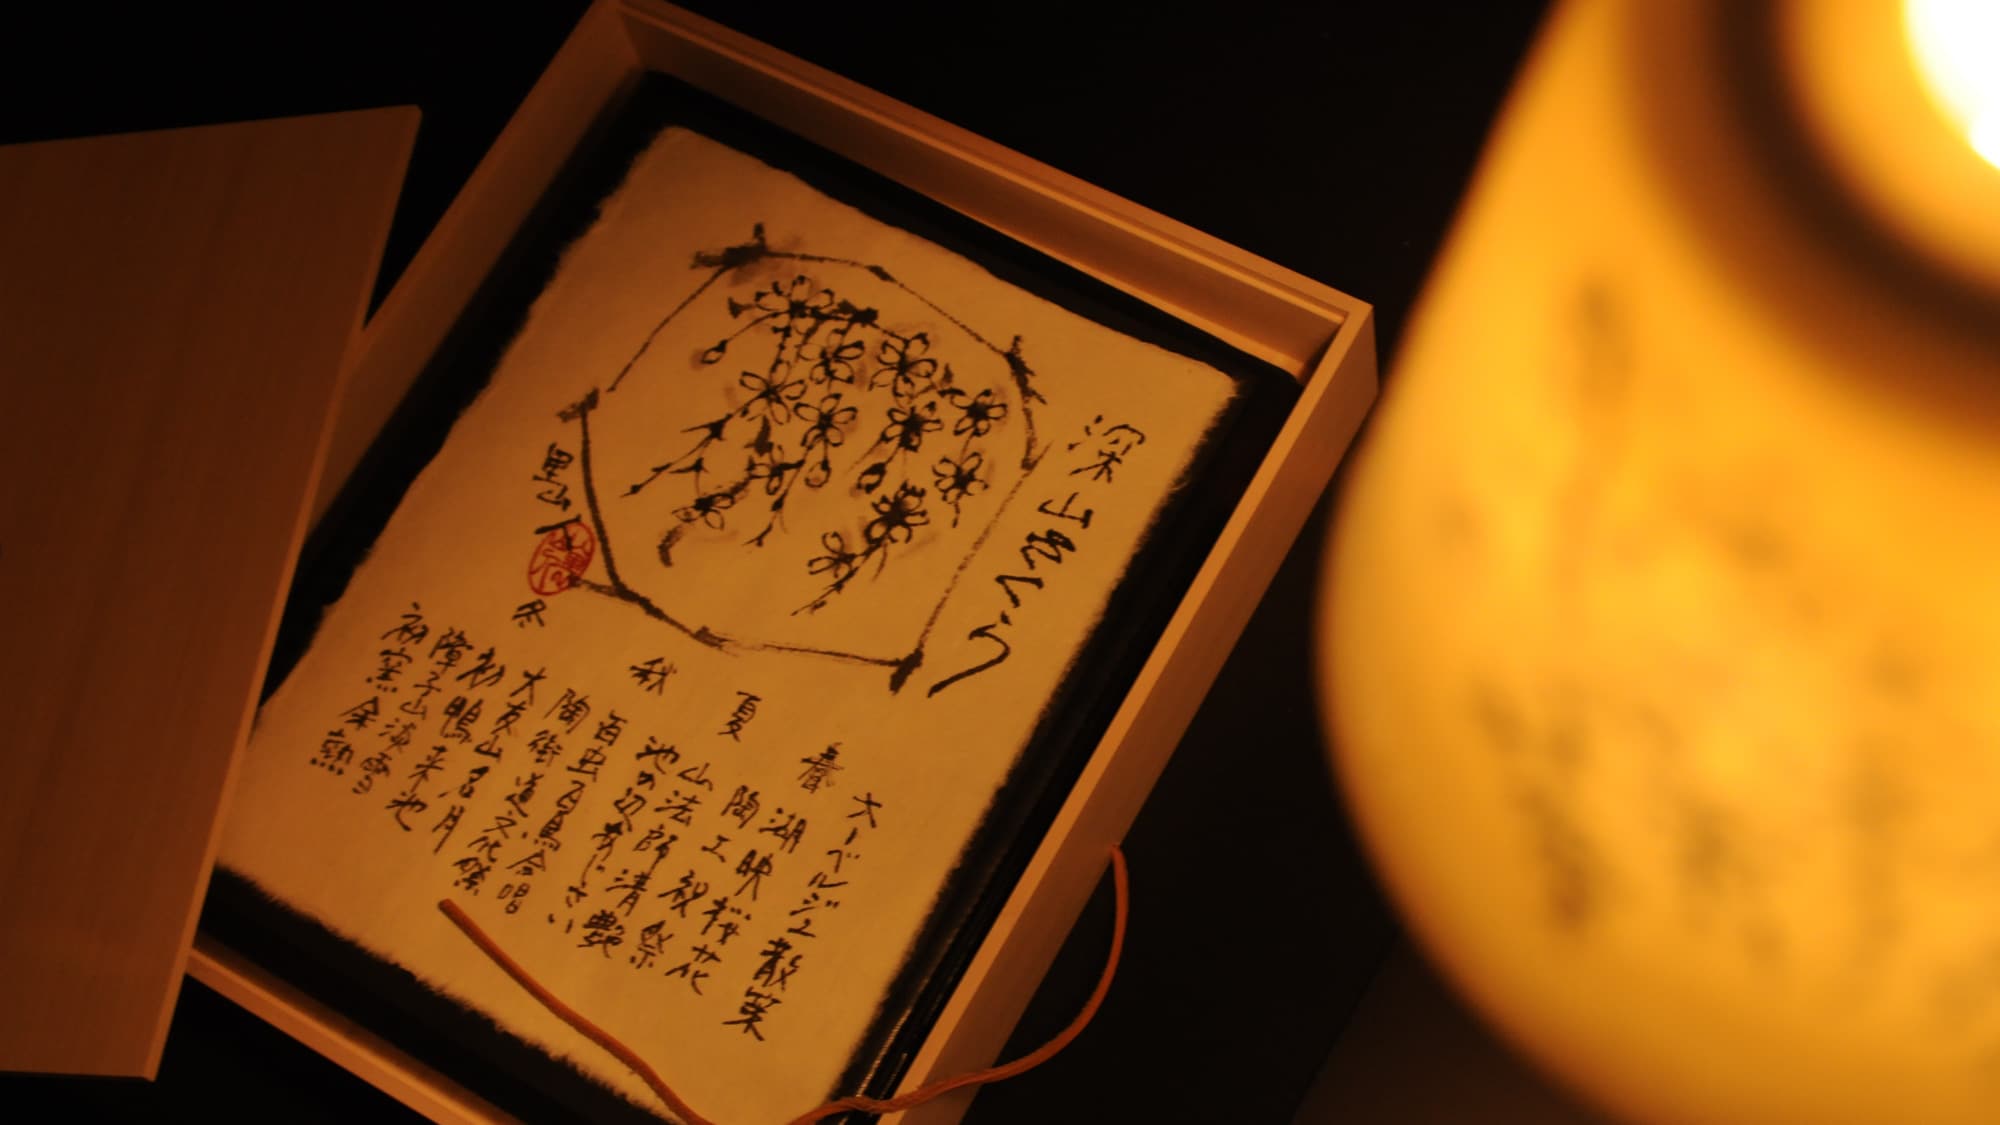 深山さくら
オーベルジュ散策
春
湖映桜花
陶工祝祭
夏
山法師清艶
池の辺あじさい
秋
百虫百鳥合唱
陶街道文化祭
大友山名月
冬
初鴨来池
障子山淡雪
初窯余熱